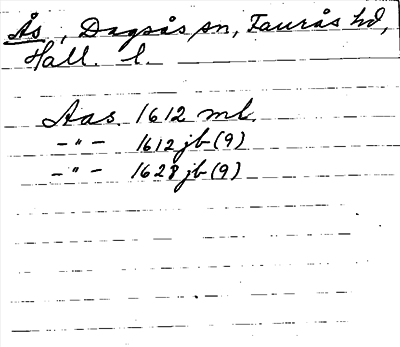 Ås, Dagsås sn, Faurås hd,
Hall. l.
Aas 1612 ml.
-"- 1612 jb (9)
-"- 1628 jb (9)